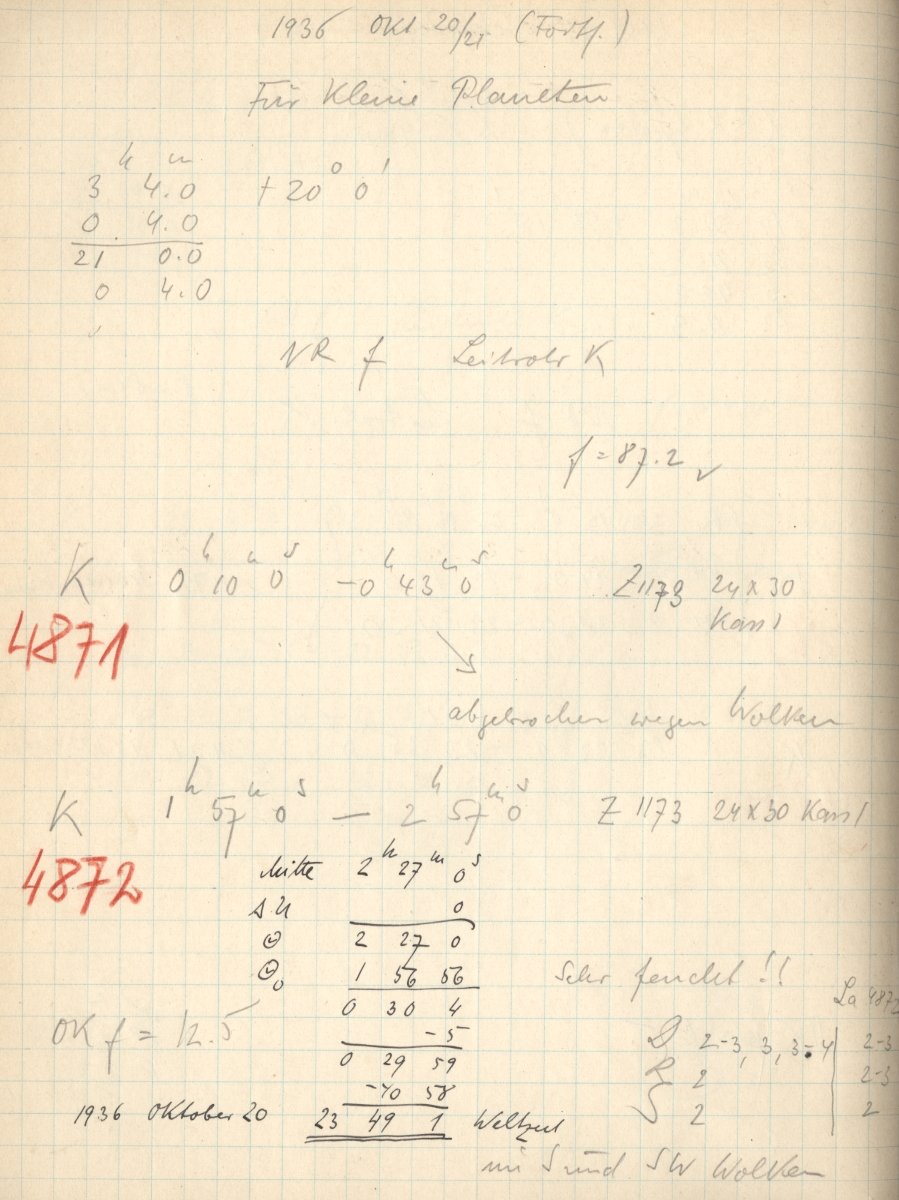 1936 Okt 20/21 (Forts.)
Für Kleine Planeten
h m
3 4.0 +20° 0'
0 4.0
21 0.0
0 4.0
NR f Leitrohr K
f = 87.2 ✓
K 0h 10m 0s – 0h 43m 0s Z 1173 24 x 30
Kass
4871
abgebrochen wegen Wolken
K 1h 57m 0s — 2h 57m 0s Z 1173 24 x 30 Kass
4872
Mitte 2h 27m 0s
ΔU 0
☉ 2 27 0
☉₀ 1 56 56
0 30 4
Sehr feucht !!
-5
OK f = 12.5
0 29 59
-40 58
1936 Oktober 20 23 49 1 Weltzeit
La 4872
D 2-3, 3, 3-4 2-3
R 2 2-3
S 2 2
im S und SW Wolken